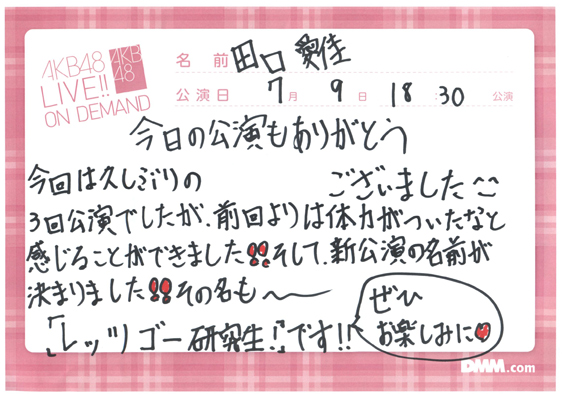 AKB48
LIVE!!
ON DEMAND
AKB
48
名前 田口 愛佳
公演日 7月 9日 18:30 公演
今日の公演もありがとう
ございました^^
今回は久しぶりの
3回公演でしたが、前回よりは体力がついたなと
感じることができました!!そして、新公演の名前が
決まりました!!その名も〜
「レッツゴー研究生!」です!!
ぜひ
お楽しみに
DMM.com